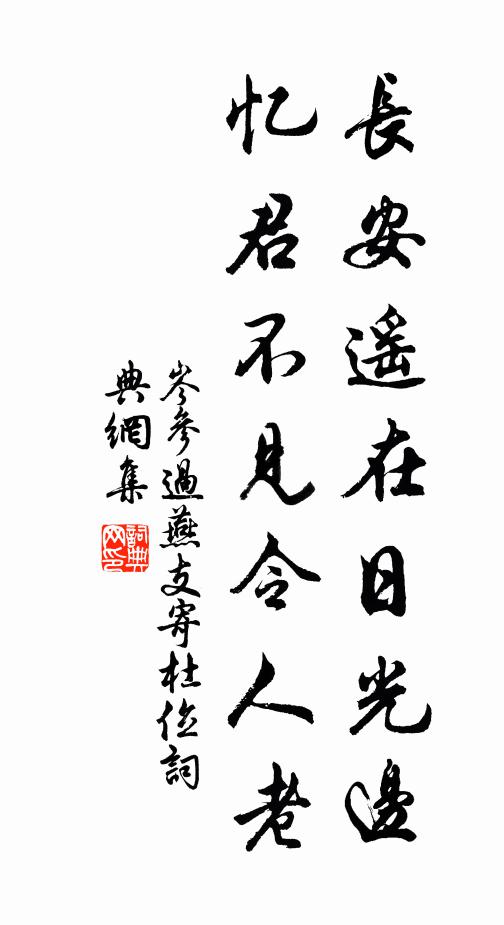 長安遥在日光邊
忆君不見令人老
岑參過燕支寄杜位詞
典網集
詞典網印